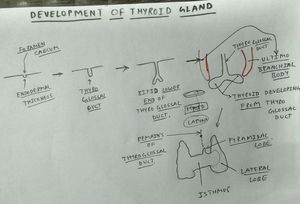 DEVELOPMENT OF THYROID GLAND
FORAMEN
CAECUM
ENDODERMAL
THICKNESS
THYRO
GLOSSAL
DUCT
BIFID LOWER
END OF
THYROGLOSSAL
DUCT.
THYROGLOSSAL
DUCT
ULTIMO
BRANCHIAL
BODY
THYROID DEVELOPING
FROM THYRO
GLOSSAL
DUCT
THYROID
LAMINA
REMAINS
OF
THYROGLOSSAL
DUCT.
PYRAMIDAL
LOBE
LATERAL
LOBE
ISTHMUS